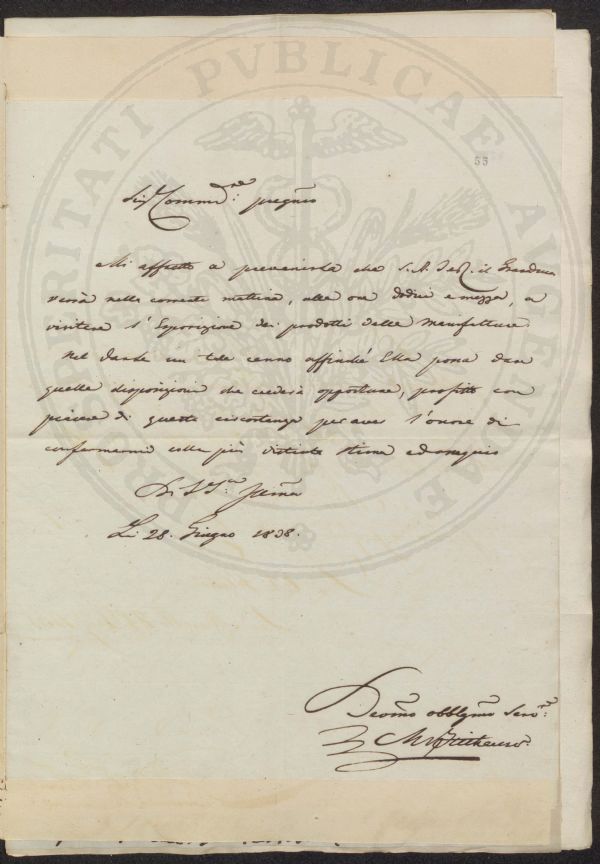 PROSPERITATI PVBLICAE AVGENDAE
55
Sigr Commend.re pregmo
Mi affretto a prevenirla che S. A. I. e R. il Granduca
verrà nella corrente mattina, alle ore dodici e mezza, a
visitare l'Esposizione dei prodotti delle Manifatture.
Nel darle un tale cenno affinchè Ella possa dare
quelle disposizioni che crederà opportune, profitto con
piacere di questa circostanza per aver l'onore di
confermarmi colla più distinta stima ed ossequio
Di V. S. Ill.ma
Li 28. Giugno 1838.
Devmo obblgmo Serv.re